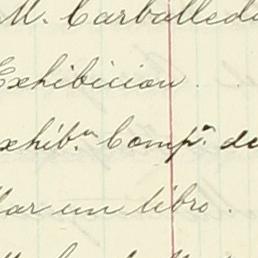 M. Carballeda
Exhibicion . .
exhib.n Comp.a de
llar un libro .